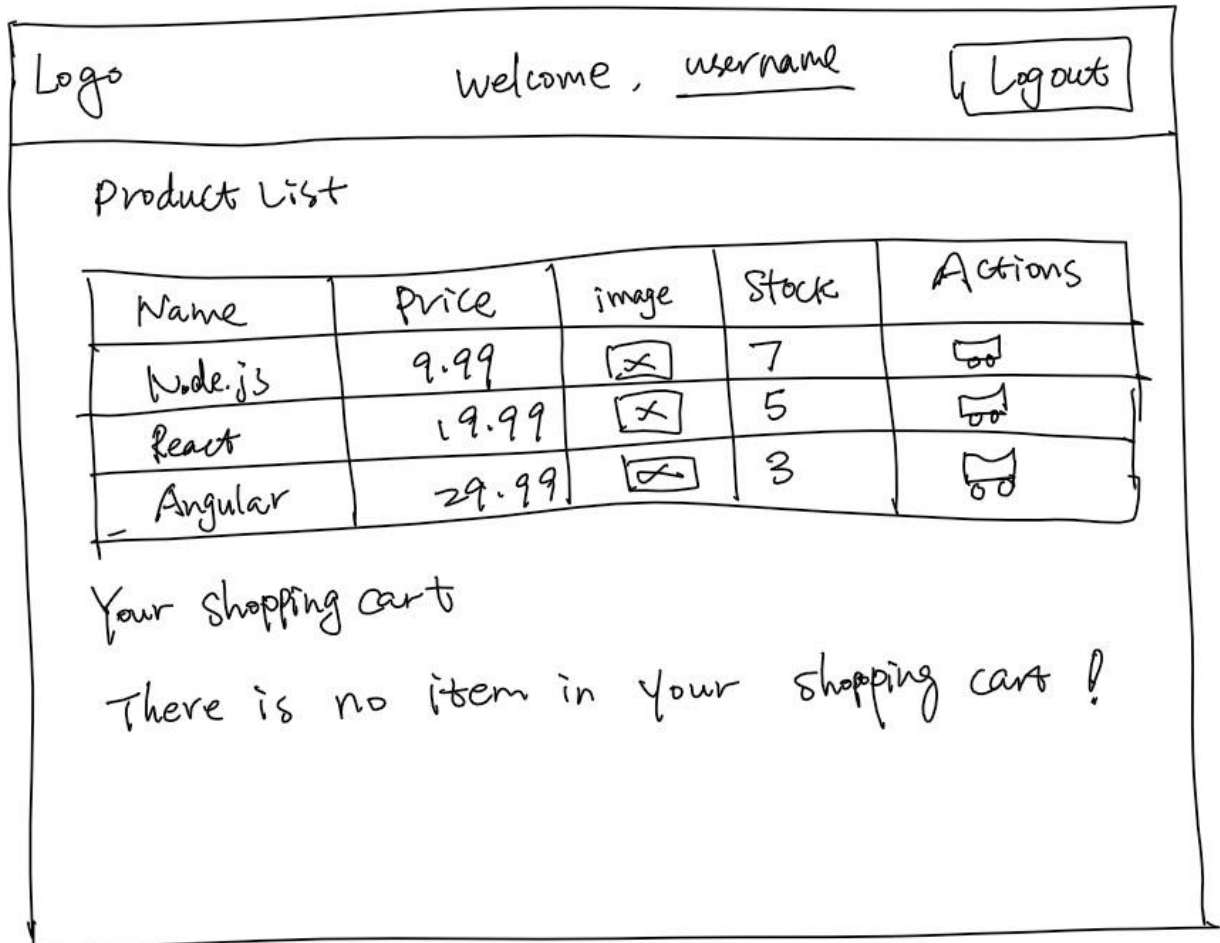 Logo welcome, username Logout
Product List
Name Price image Stock Actions
Node.js 9.99 7
React 19.99 5
Angular 29.99 3
Your shopping cart
There is no item in your shopping cart!